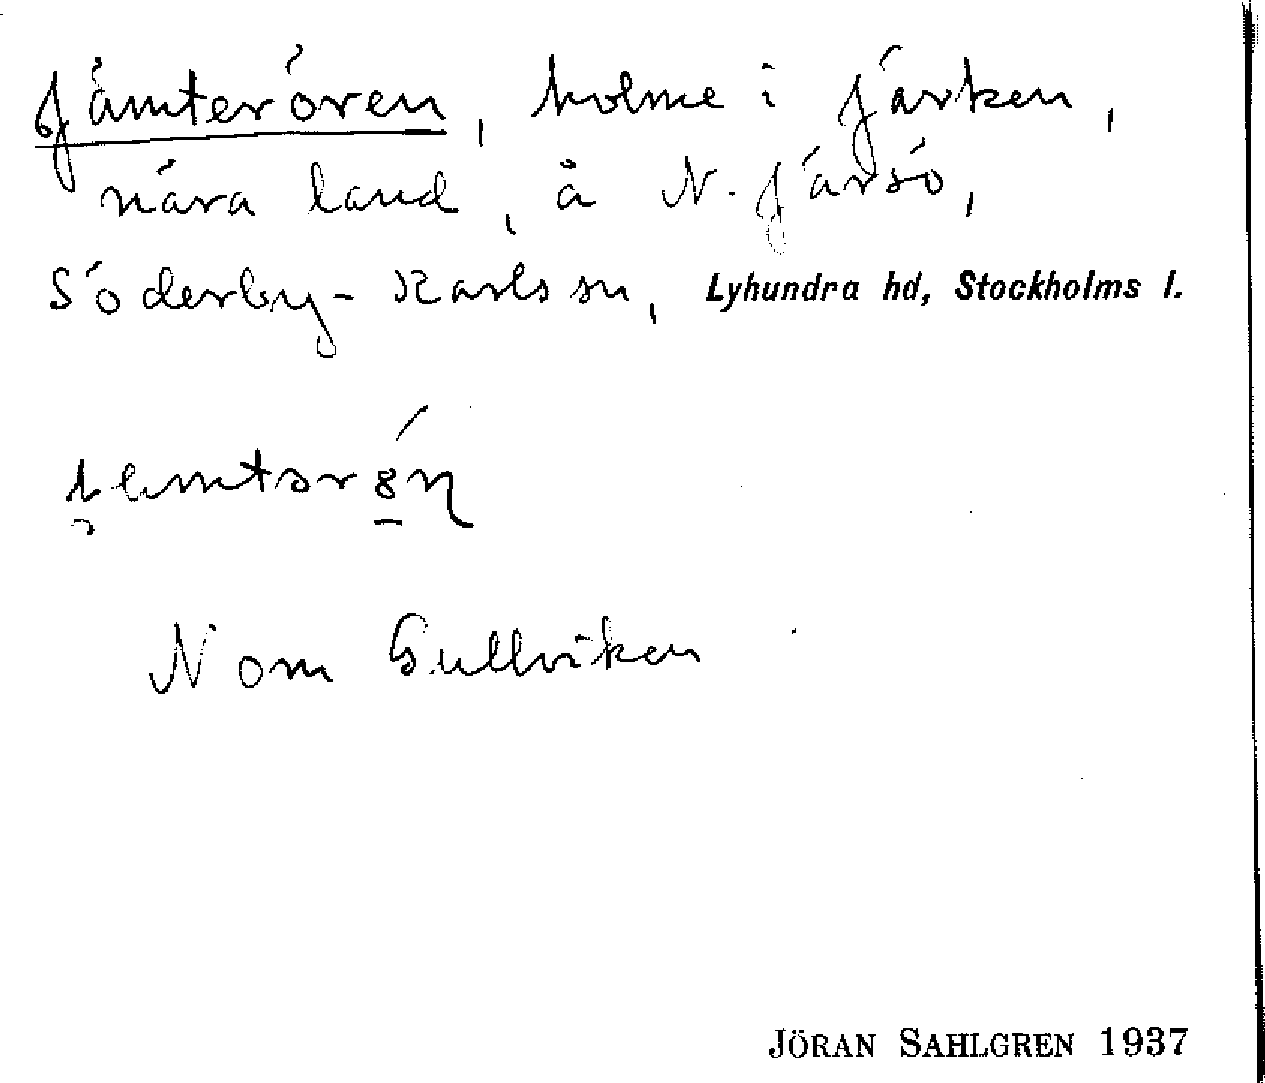 Jämterören, holme i Järken,
nära land, å N. Järsö,
Söderby-Karls sn, Lyhundra hd, Stockholms l.
N om Gullviken
JÖRAN SAHLGREN 1937